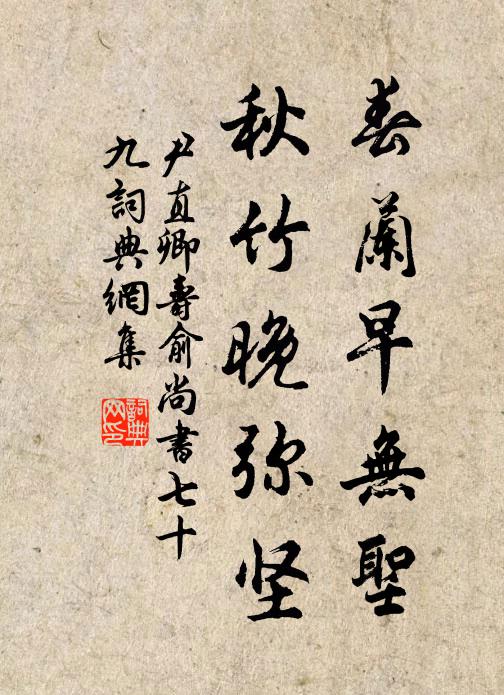 春蘭早無聖
秋竹晚弥坚
尹直卿壽俞尚書七十
九詞典網集
詞典
网印